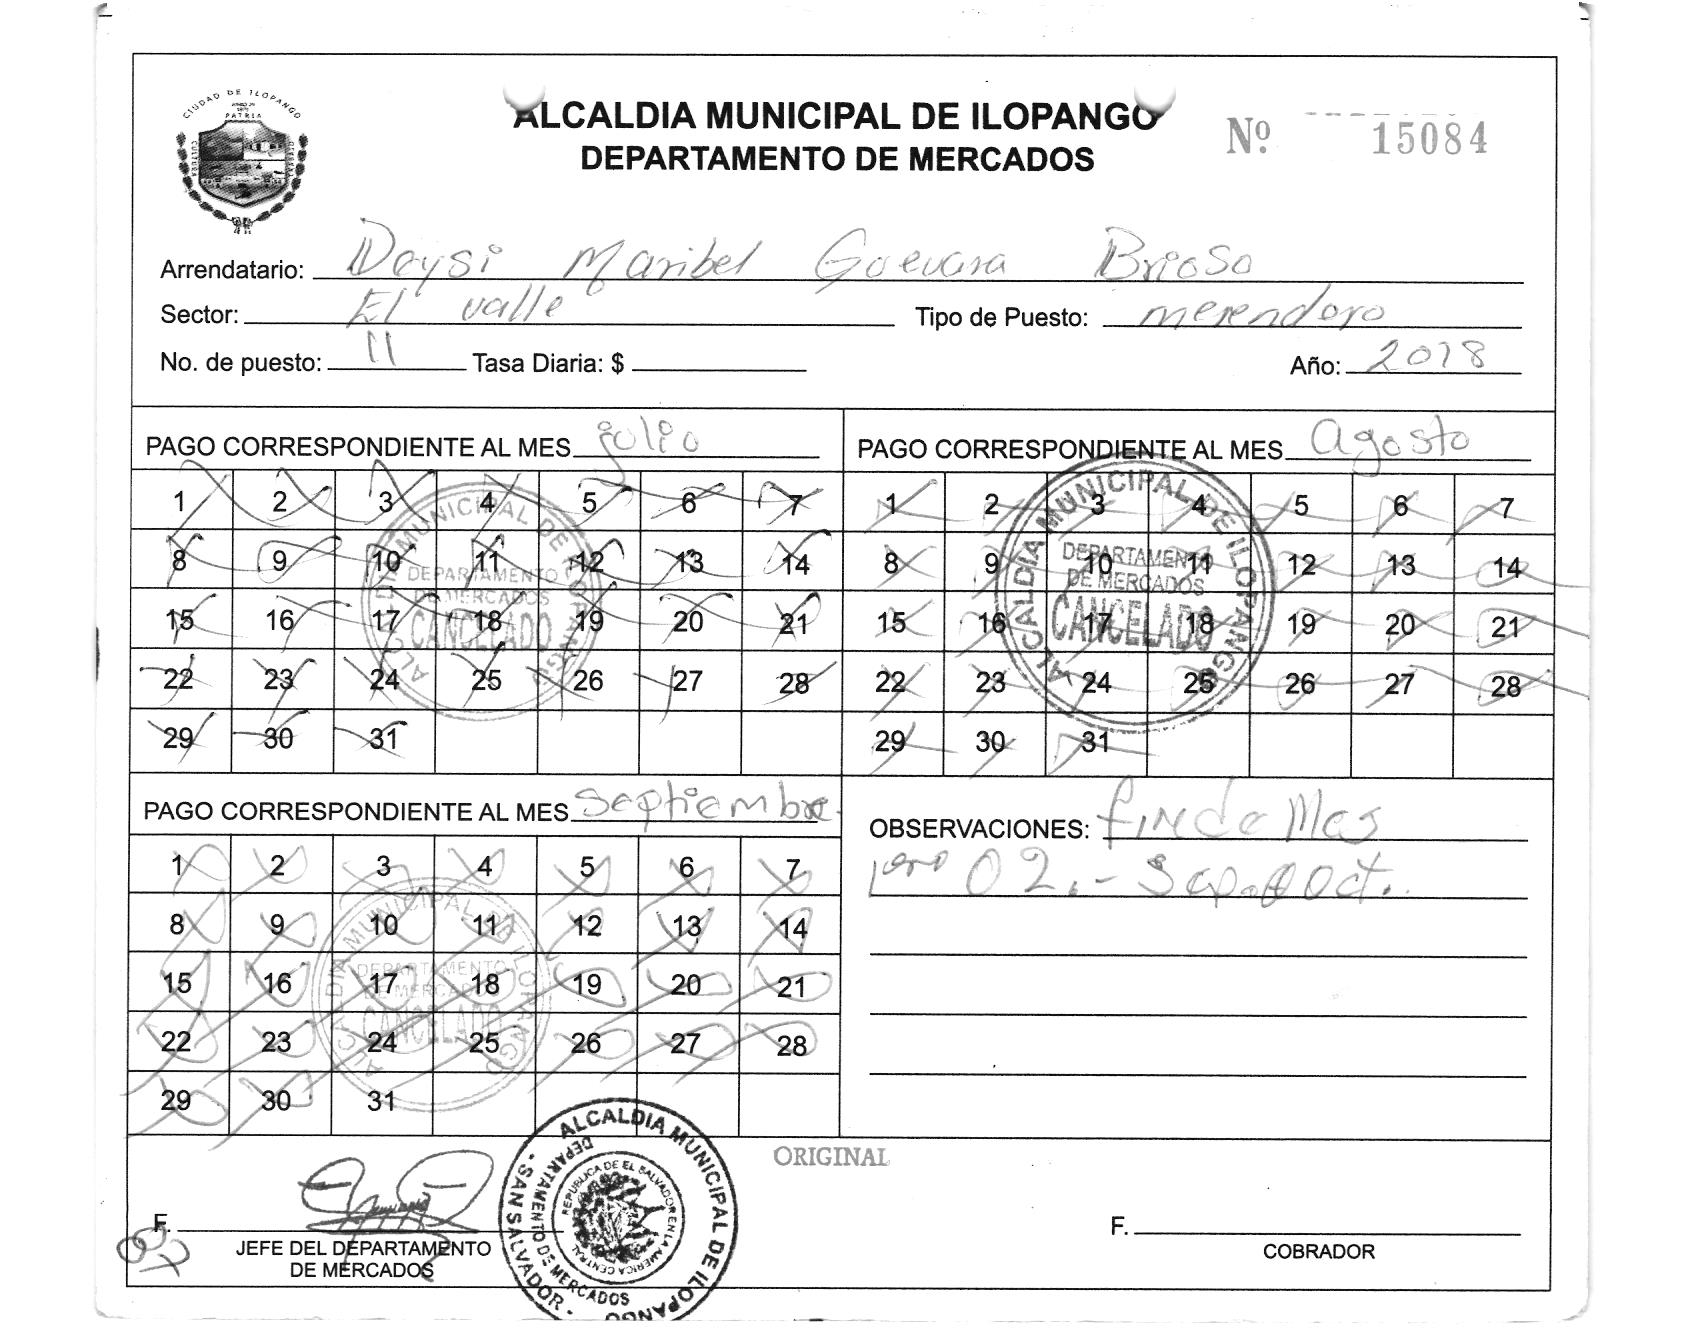 CIUDAD DE ILOPANGO
PATRIA
CULTURA
ALCALDIA MUNICIPAL DE ILOPANGO
DEPARTAMENTO DE MERCADOS
Nº 15084
Arrendatario: Deysi Maribel Guevara Brioso
Sector: El valle Tipo de Puesto: merendero
No. de puesto: 11 Tasa Diaria: $ Año: 2018
PAGO CORRESPONDIENTE AL MES julio
1 2 3 4 5 6 7
8 9 10 11 12 13 14
15 16 17 18 19 20 21
22 23 24 25 26 27 28
29 30 31
ALCALDIA MUNICIPAL DE ILOPANGO
DEPARTAMENTO
DE MERCADOS
CANCELADO
PAGO CORRESPONDIENTE AL MES agosto
1 2 3 4 5 6 7
8 9 10 11 12 13 14
15 16 17 18 19 20 21
22 23 24 25 26 27 28
29 30 31
ALCALDIA MUNICIPAL DE ILOPANGO
DEPARTAMENTO
DE MERCADOS
CANCELADO
PAGO CORRESPONDIENTE AL MES septiembre
1 2 3 4 5 6 7
8 9 10 11 12 13 14
15 16 17 18 19 20 21
22 23 24 25 26 27 28
29 30 31
ALCALDIA MUNICIPAL DE ILOPANGO
DEPARTAMENTO
DE MERCADOS
CANCELADO
OBSERVACIONES:
02.-
ORIGINAL
F.
JEFE DEL DEPARTAMENTO
DE MERCADOS
ALCALDIA MUNICIPAL DE ILOPANGO
DEPARTAMENTO DE MERCADOS
- SAN SALVADOR -
REPUBLICA DE EL SALVADOR EN LA AMERICA CENTRAL
F.
COBRADOR